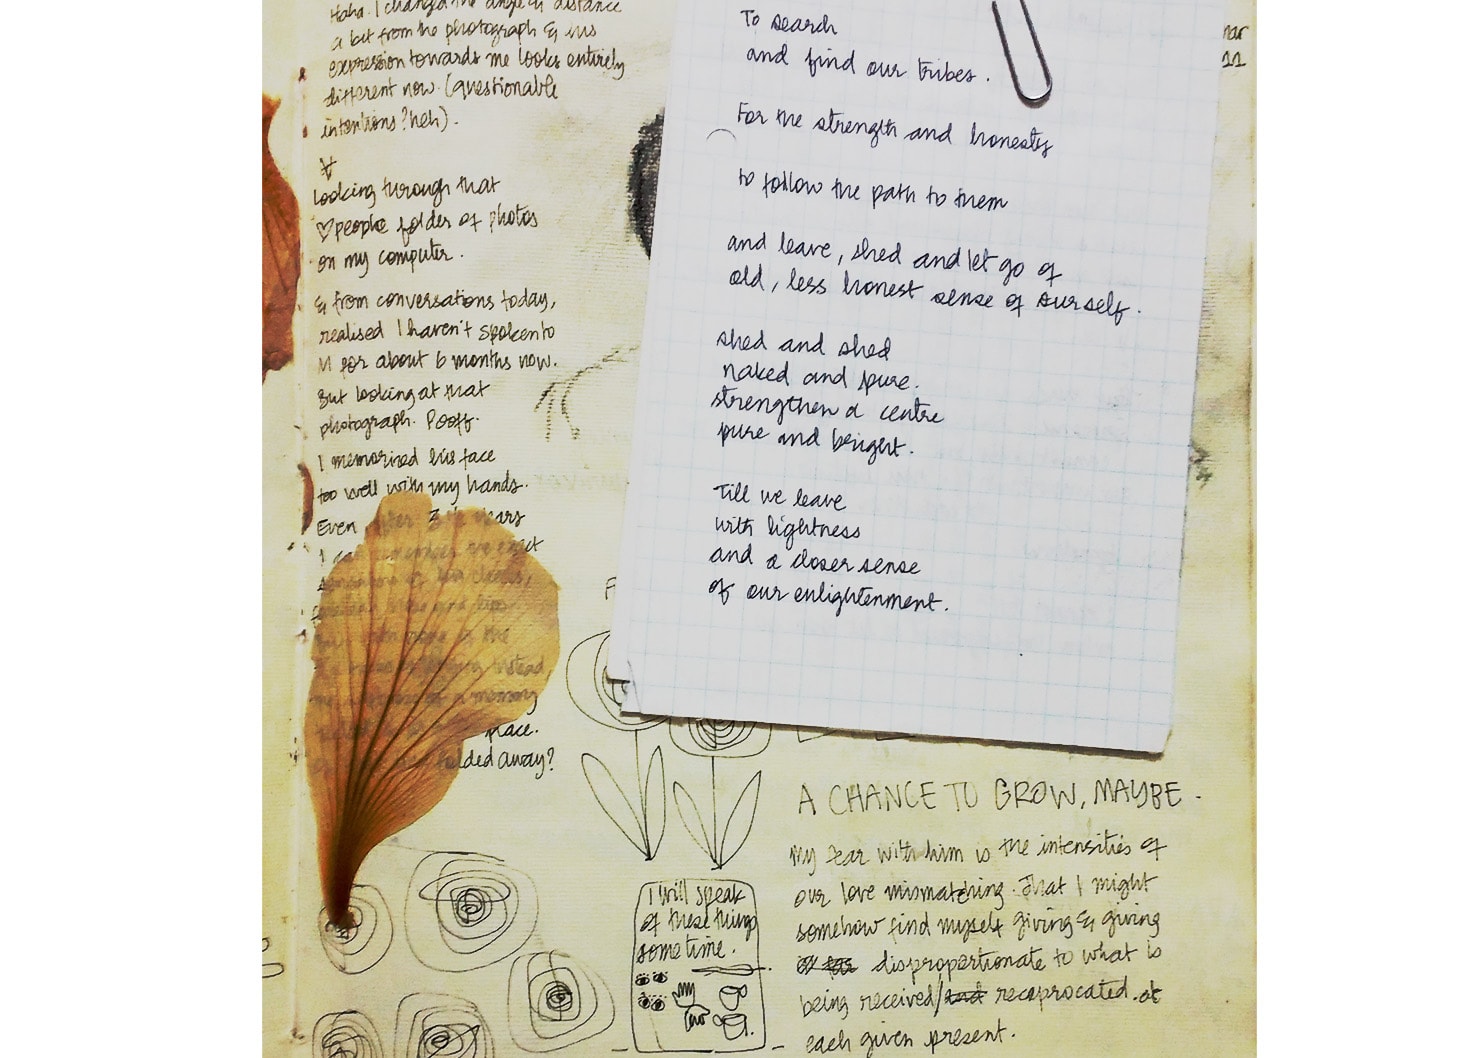 Haha. I changed the angle & distance
a bit from the photograph & his
expression towards me looks entirely
different now. (questionable
intentions? heh).
looking through that
♡people folder of photos
on my computer.
& from conversations today,
realised I haven't spoken to
M for about 6 months now.
But looking at that
photograph. Pooff.
I memorized his face
too well with my hands.
Even after 3 years
I
instead,
of a memory
place.
folded away?
To search
and find our tribes.
For the strength and honesty
to follow the path to them
and leave, shed and let go of
old, less honest sense of ourself.
shed and shed
naked and pure.
strengthen a centre
pure and bright.
Till we leave
with lightness
and a closer sense
of our enlightenment.
mar
11
F
I will speak
of these things
sometime.
A CHANCE TO GROW, MAYBE.
My fear with him is the intensities of
our love mismatching. That I might
somehow find myself giving & giving
disproportionate to what is
being received/ reciprocated. at
each given present.